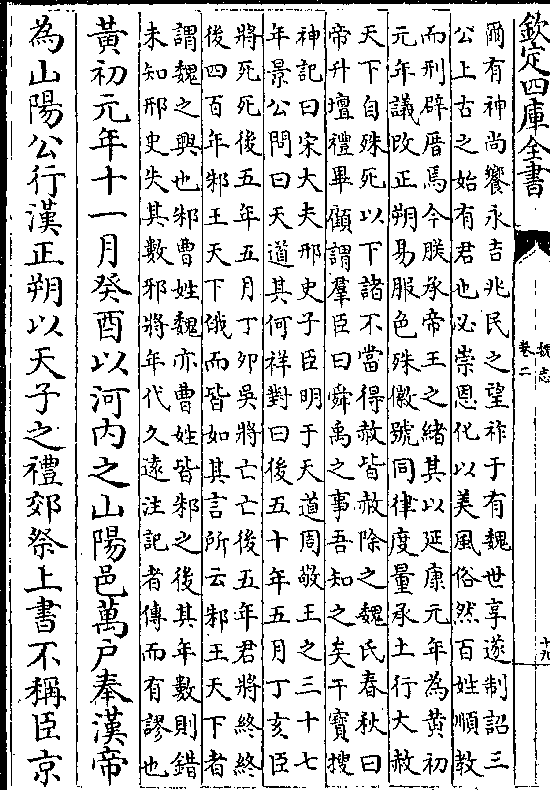 欽定四庫全書
魏志
卷二
十九
爾有神尚饗永吉兆民之望祚于有魏世享遂制詔三
公上古之始有君也必崇恩化以美風俗然百姓順教
而刑辟厝焉今朕承帝王之緒其以延康元年為黄初
元年議改正朔易服色殊徽號同律度量承土行大赦
天下自殊死以下諸不當得赦皆赦除之魏氏春秋曰
帝升壇禮畢顧謂羣臣曰舜禹之事吾知之矣干寶搜
神記曰宋大夫邢史子臣明于天道周敬王之三十七
年景公問曰天道其何祥對曰後五十年五月丁亥臣
將死死後五年五月丁卯吳將亡亡後五年君將終終
後四百年邾王天下俄而皆如其言所云邾王天下者
謂魏之興也邾曹姓魏亦曹姓皆邾之後其年數則錯
未知邢史失其數邪將年代久遠注記者傳而有謬也
黃初元年十一月癸酉以河内之山陽邑萬户奉漢帝
為山陽公行漢正朔以天子之禮郊祭上書不稱臣京